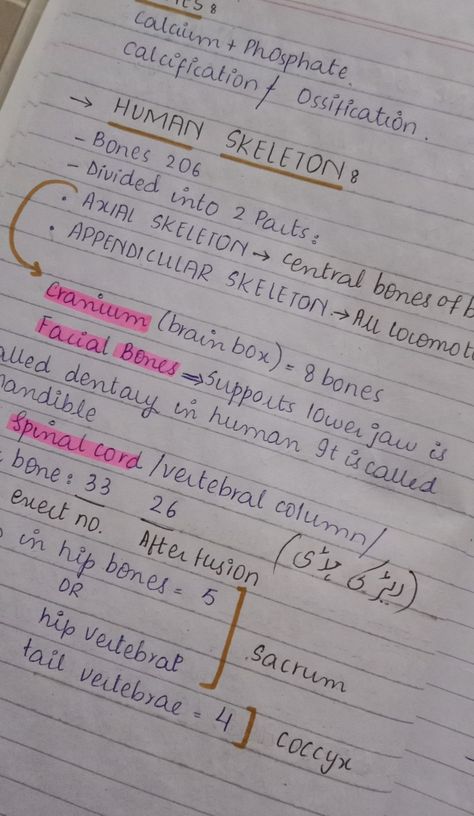 Calcium + Phosphate.
Calcification / Ossification.
→ HUMAN SKELETON:
- Bones 206
- Divided into 2 Parts:
• AXIAL SKELETON → central bones of
• APPENDICULAR SKELETON → All locomot
Cranium (brain box) = 8 bones
Facial Bones ⇒ Supports lower jaw is
alled dentary in human It is called
mandible
Spinal cord / vertebral column /
bone: 33 26
exect no. After fusion
in hip bones = 5
OR
hip vertebrat
sacrum
tail vertebrae = 4
coccyx